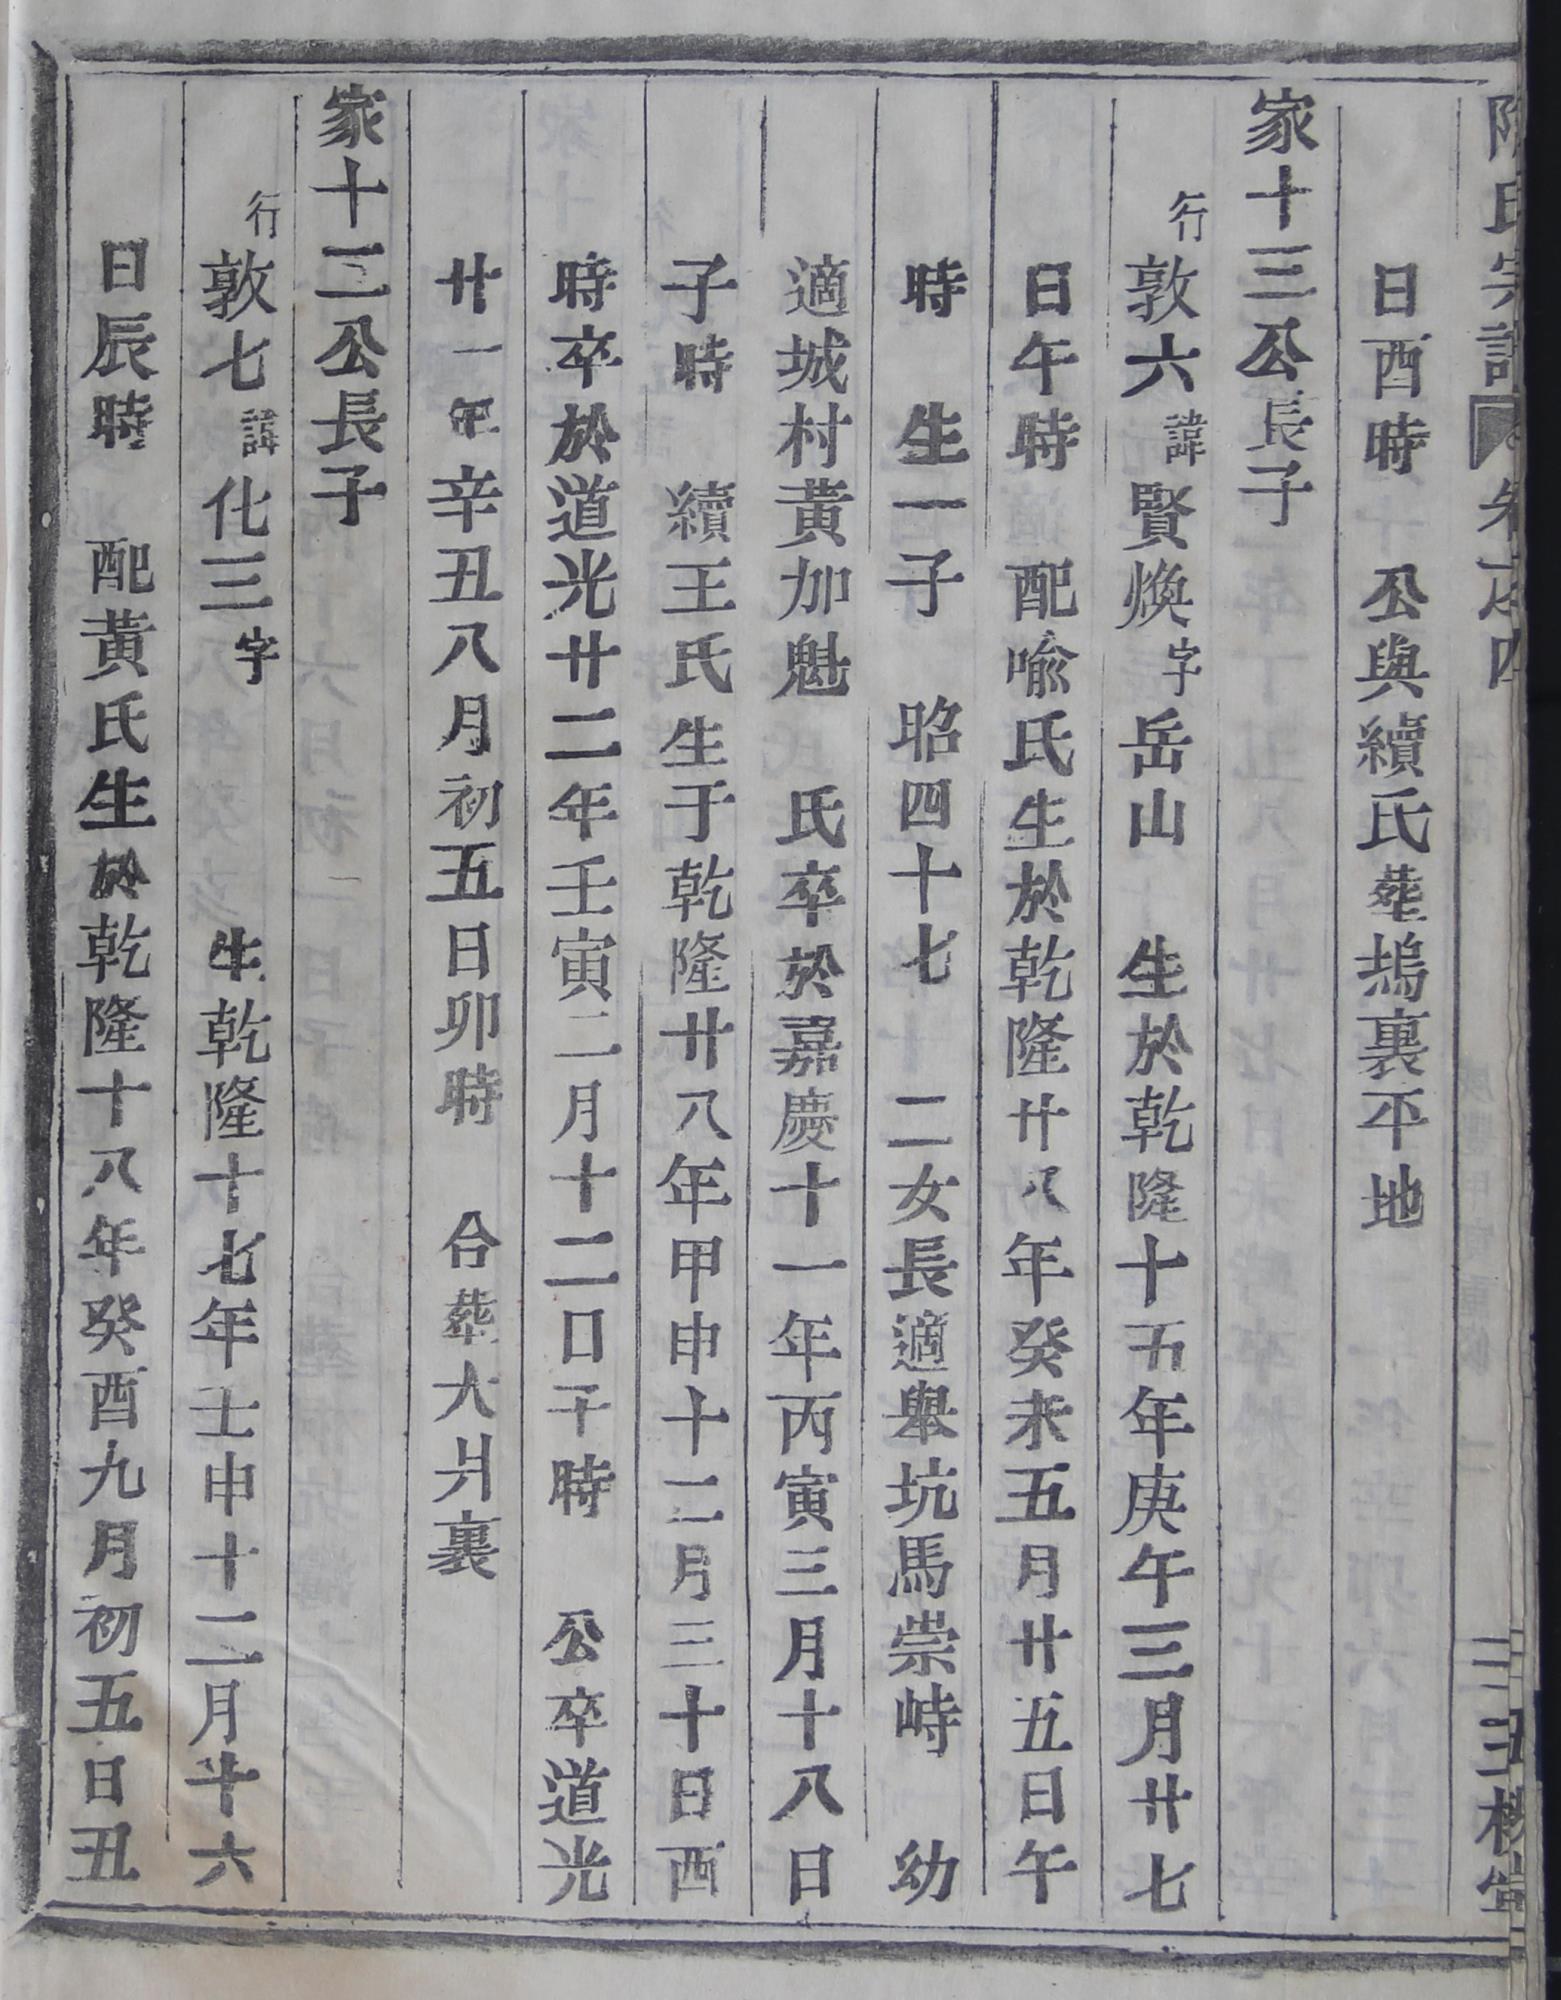 氏宗譜 卷之四 三槐堂
日酉時 公與續氏塟塢裏平地
家十三公長子
行敦六諱賢煥字岳山 生於乾隆十五年庚午三月廿七
日午時 配喻氏生於乾隆廿八年癸未五月廿五日午
時 生一子 昭四十七 二女長適舉坑馬崇峙 幼
適城村黃加魁 氏卒於嘉慶十一年丙寅三月十八日
子時 續王氏生于乾隆廿八年甲申十二月三十日酉
時卒於道光廿二年壬寅二月十二日子時 公卒道光
廿一年辛丑八月初五日卯時 合塟大爿裏
家十二公長子
行敦七諱化三字 生乾隆十七年壬申十二月廿六
日辰時 配黃氏生於乾隆十八年癸酉九月初五日丑